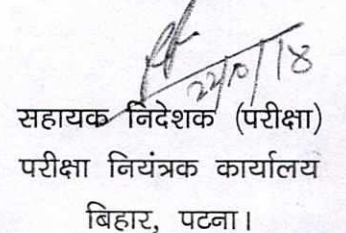 22/10/18
सहायक निदेशक (परीक्षा)
परीक्षा नियंत्रक कार्यालय
बिहार, पटना।